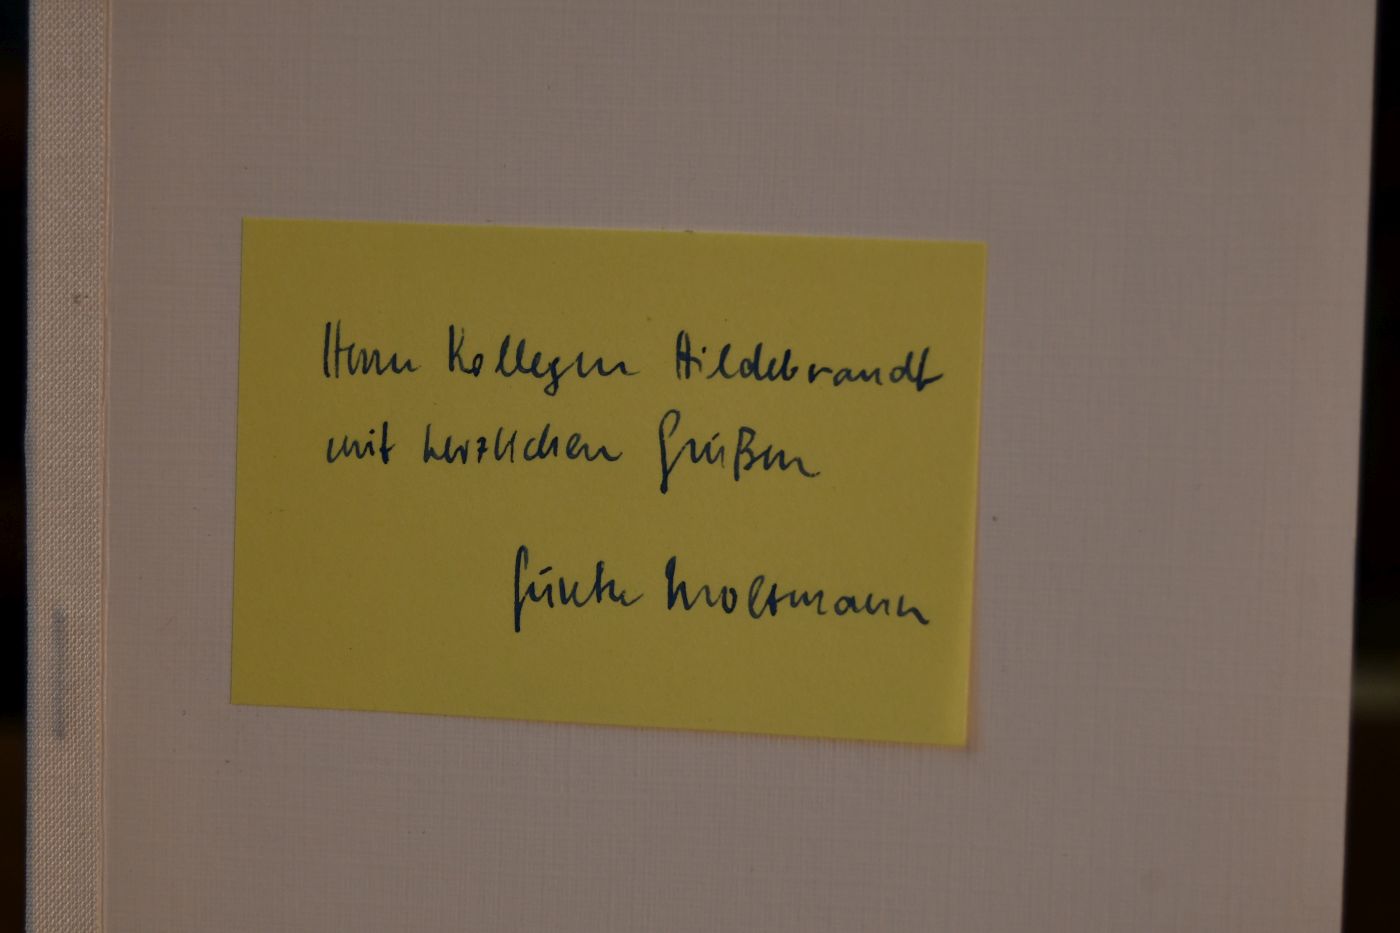 Herrn Kollegen Hildebrandt
mit herzlichen Grüßen
Günter Moltmann